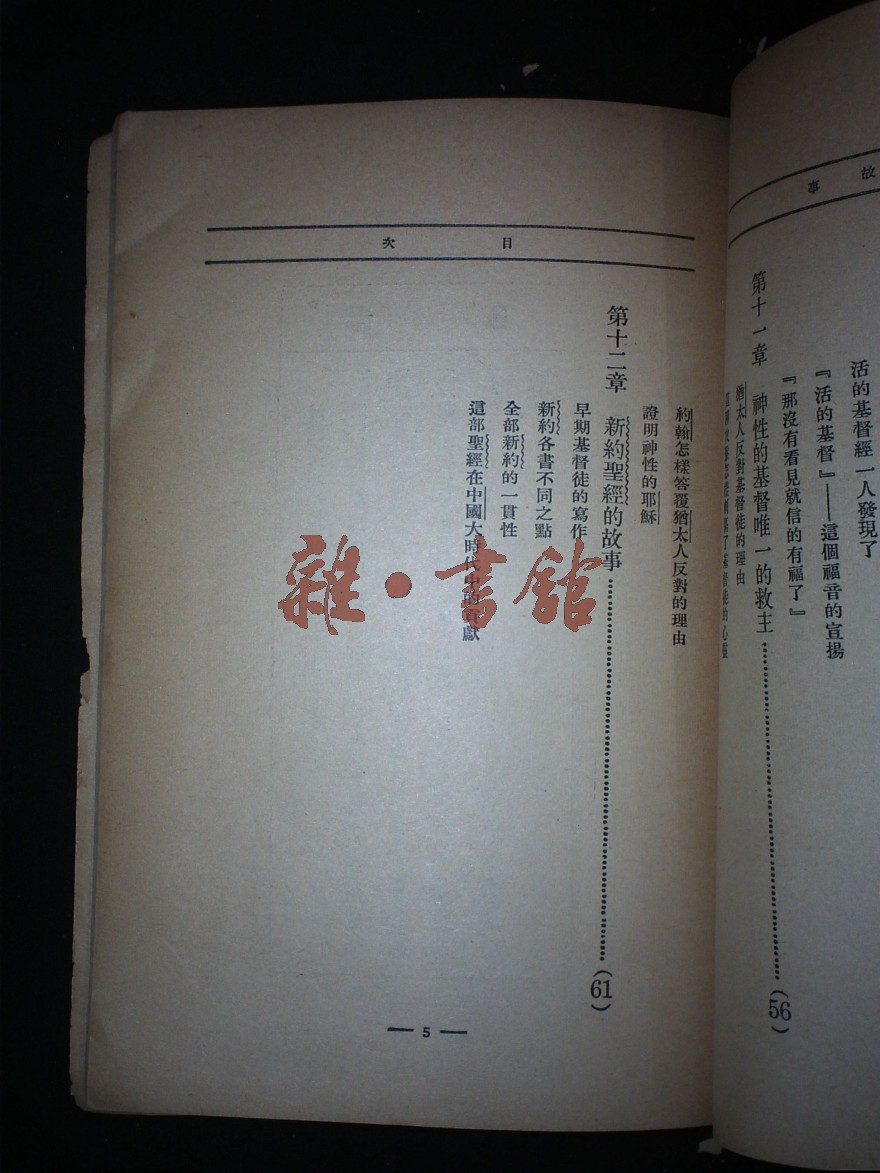 故事
活的基督經一人發現了
『活的基督』——這個福音的宣揚
『那沒有看見就信的有福了』
第十一章 神性的基督唯一的救主 (56)
猶太人反對基督徒的理由
了基督徒的心靈
目次
約翰怎樣答覆猶太人反對的理由
證明神性的耶穌
第十二章 新約聖經的故事 (61)
早期基督徒的寫作
新約各書不同之點
全部新約的一貫性
這部聖經在中國大時代中的貢獻
— 5 —
雜·書館